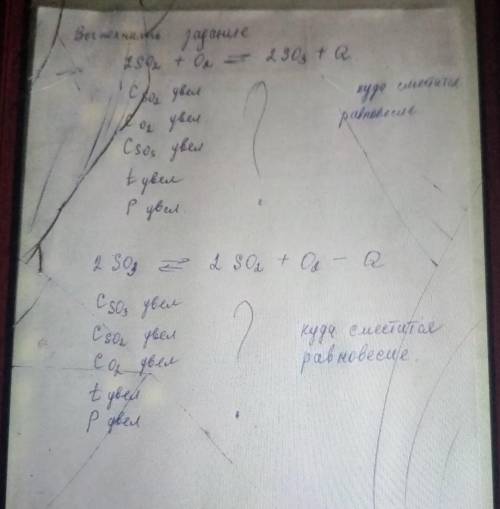 Выполнить задание
2SO₂ + O₂ ⇌ 2SO₃ + Q
C SO₂ увел
C O₂ увел
C SO₃ увел
t увел
P увел.
?
куда сместится
равновесие
2 SO₃ ⇌ 2 SO₂ + O₂ − Q
C SO₃ увел
C SO₂ увел
C O₂ увел
t увел
P увел
?
куда сместится
равновесие.